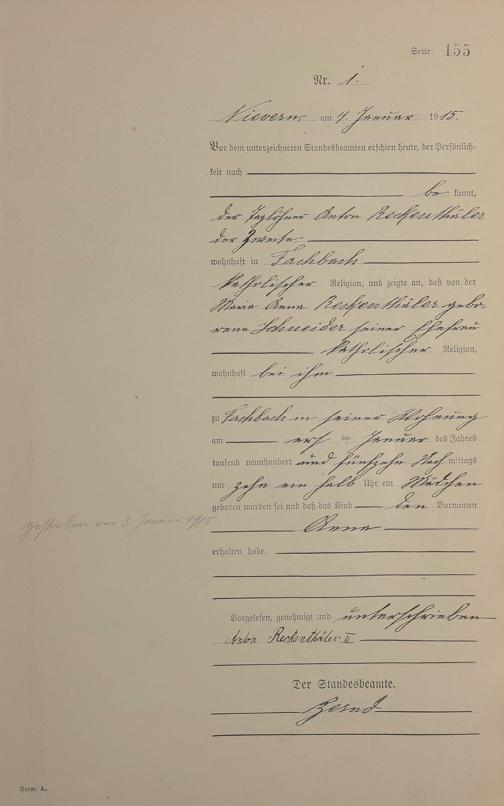 Seite 155
Nr. 1.
Nievern, am 4 Januar 1915.
Vor dem unterzeichneten Standesbeamten erschien heute, der Persönlich-
keit nach
be kannt,
der Taglöhner Anton Reckenthäler
der Zweite
wohnhaft in Fachbach
katholischer Religion, und zeigte an, daß von der
Maria Anna Reckenthäler gebo-
rene Schneider seiner Ehefrau
katholischer Religion,
wohnhaft bei ihm
zu Fachbach in seiner Wohnung
am ersten Januar des Jahres
tausend neunhundert und fünfzehn Nach mittags
um zehn ein halb Uhr ein Mädchen
geboren worden sei und daß das Kind den Vornamen
gestorben am 3. Januar 1915
Anna
erhalten habe.
Vorgelesen, genehmigt und unterschrieben
Anton Reckenthäler II
Der Standesbeamte.
Form. A.